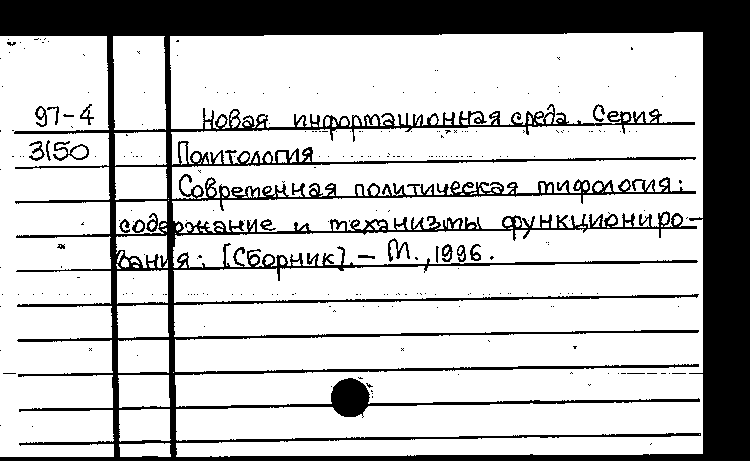 97-4 Новая информационная среда. Серия
3150 Политология
Современная политическая мифология:
содержание и механизмы функциониро-
вания: [Сборник]. - М., 1996.